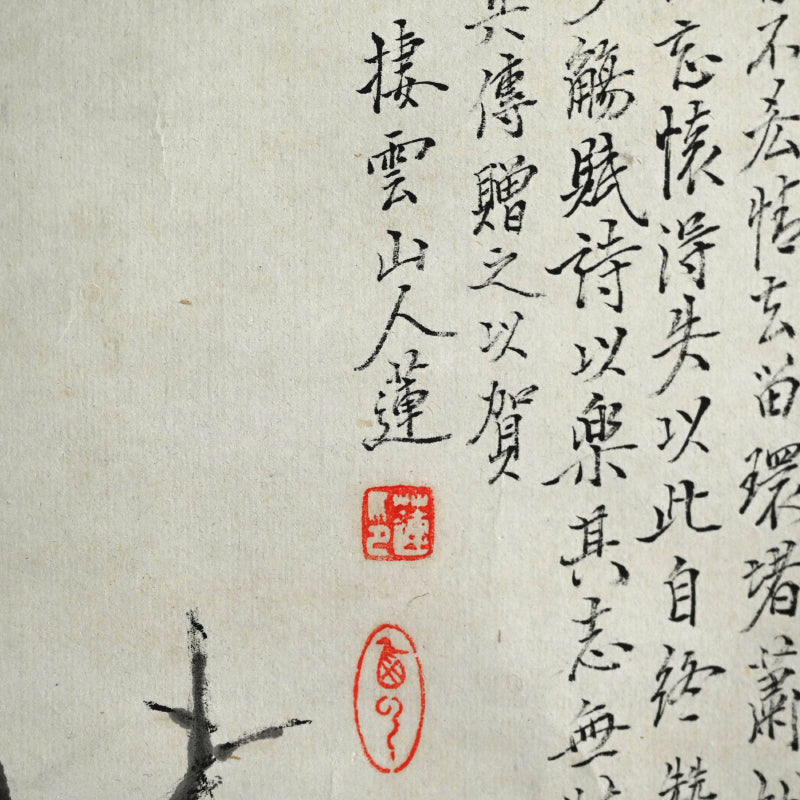 不宏情去留環堵蕭
忘懷得失以此自終贊
觴賦詩以樂其志無
其傳贈之以賀
棲雲山人蓮
蓮